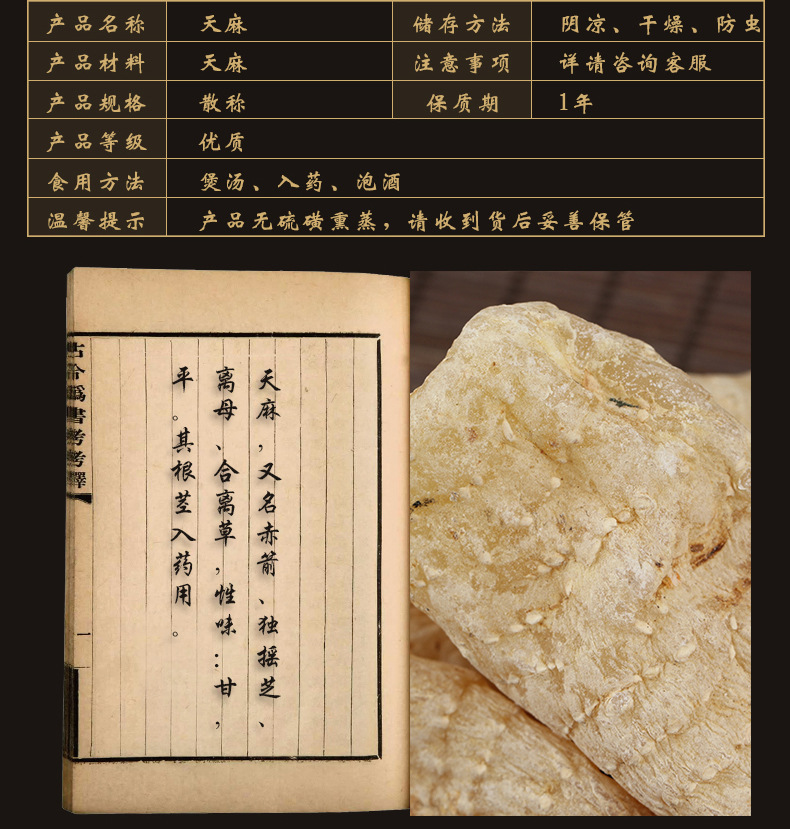 产品名称 天麻 储存方法 阴凉、干燥、防虫
产品材料 天麻 注意事项 详请咨询客服
产品规格 散称 保质期 1年
产品等级 优质
食用方法 煲汤、入药、泡酒
温馨提示 产品无硫磺熏蒸，请收到货后妥善保管
天麻，又名赤箭、独摇芝、
离母、合离草，性味：甘，
平。其根茎入药用。
古今伪書考考釋
一